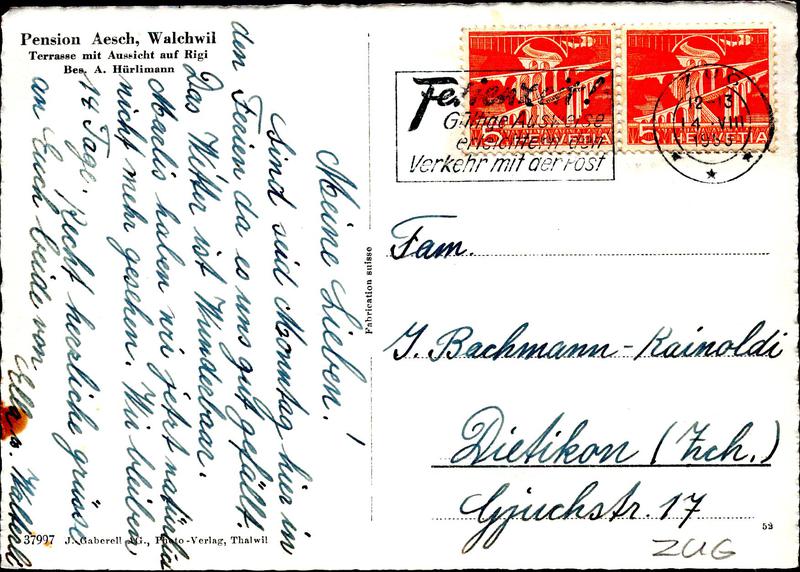 Pension Aesch, Walchwil
Terrasse mit Aussicht auf Rigi
Bes. A. Hürlimann
Meine Lieben!
Sind seid Monntag hier in
den Ferien da es uns gut gefällt.
Das Wetter ist Wunderbaar.
Marlis haben wir jetzt natürlich
nicht mehr gesehen. Wir bleiben
14 Tage. Recht herzliche grüsse
an Euch beide von
Ella u. Walterli
37997 J. Gaberell AG., Photo-Verlag, Thalwil
Fabrication suisse
Ferienzeit!
verkehr mit der Post
5 HELVETIA
5 HELVETIA
ZUG
12-13
VIII
Fam.
J. Bachmann-Rainoldi
Dietikon (Zch.)
Gjuchstr. 17
53
ZUG